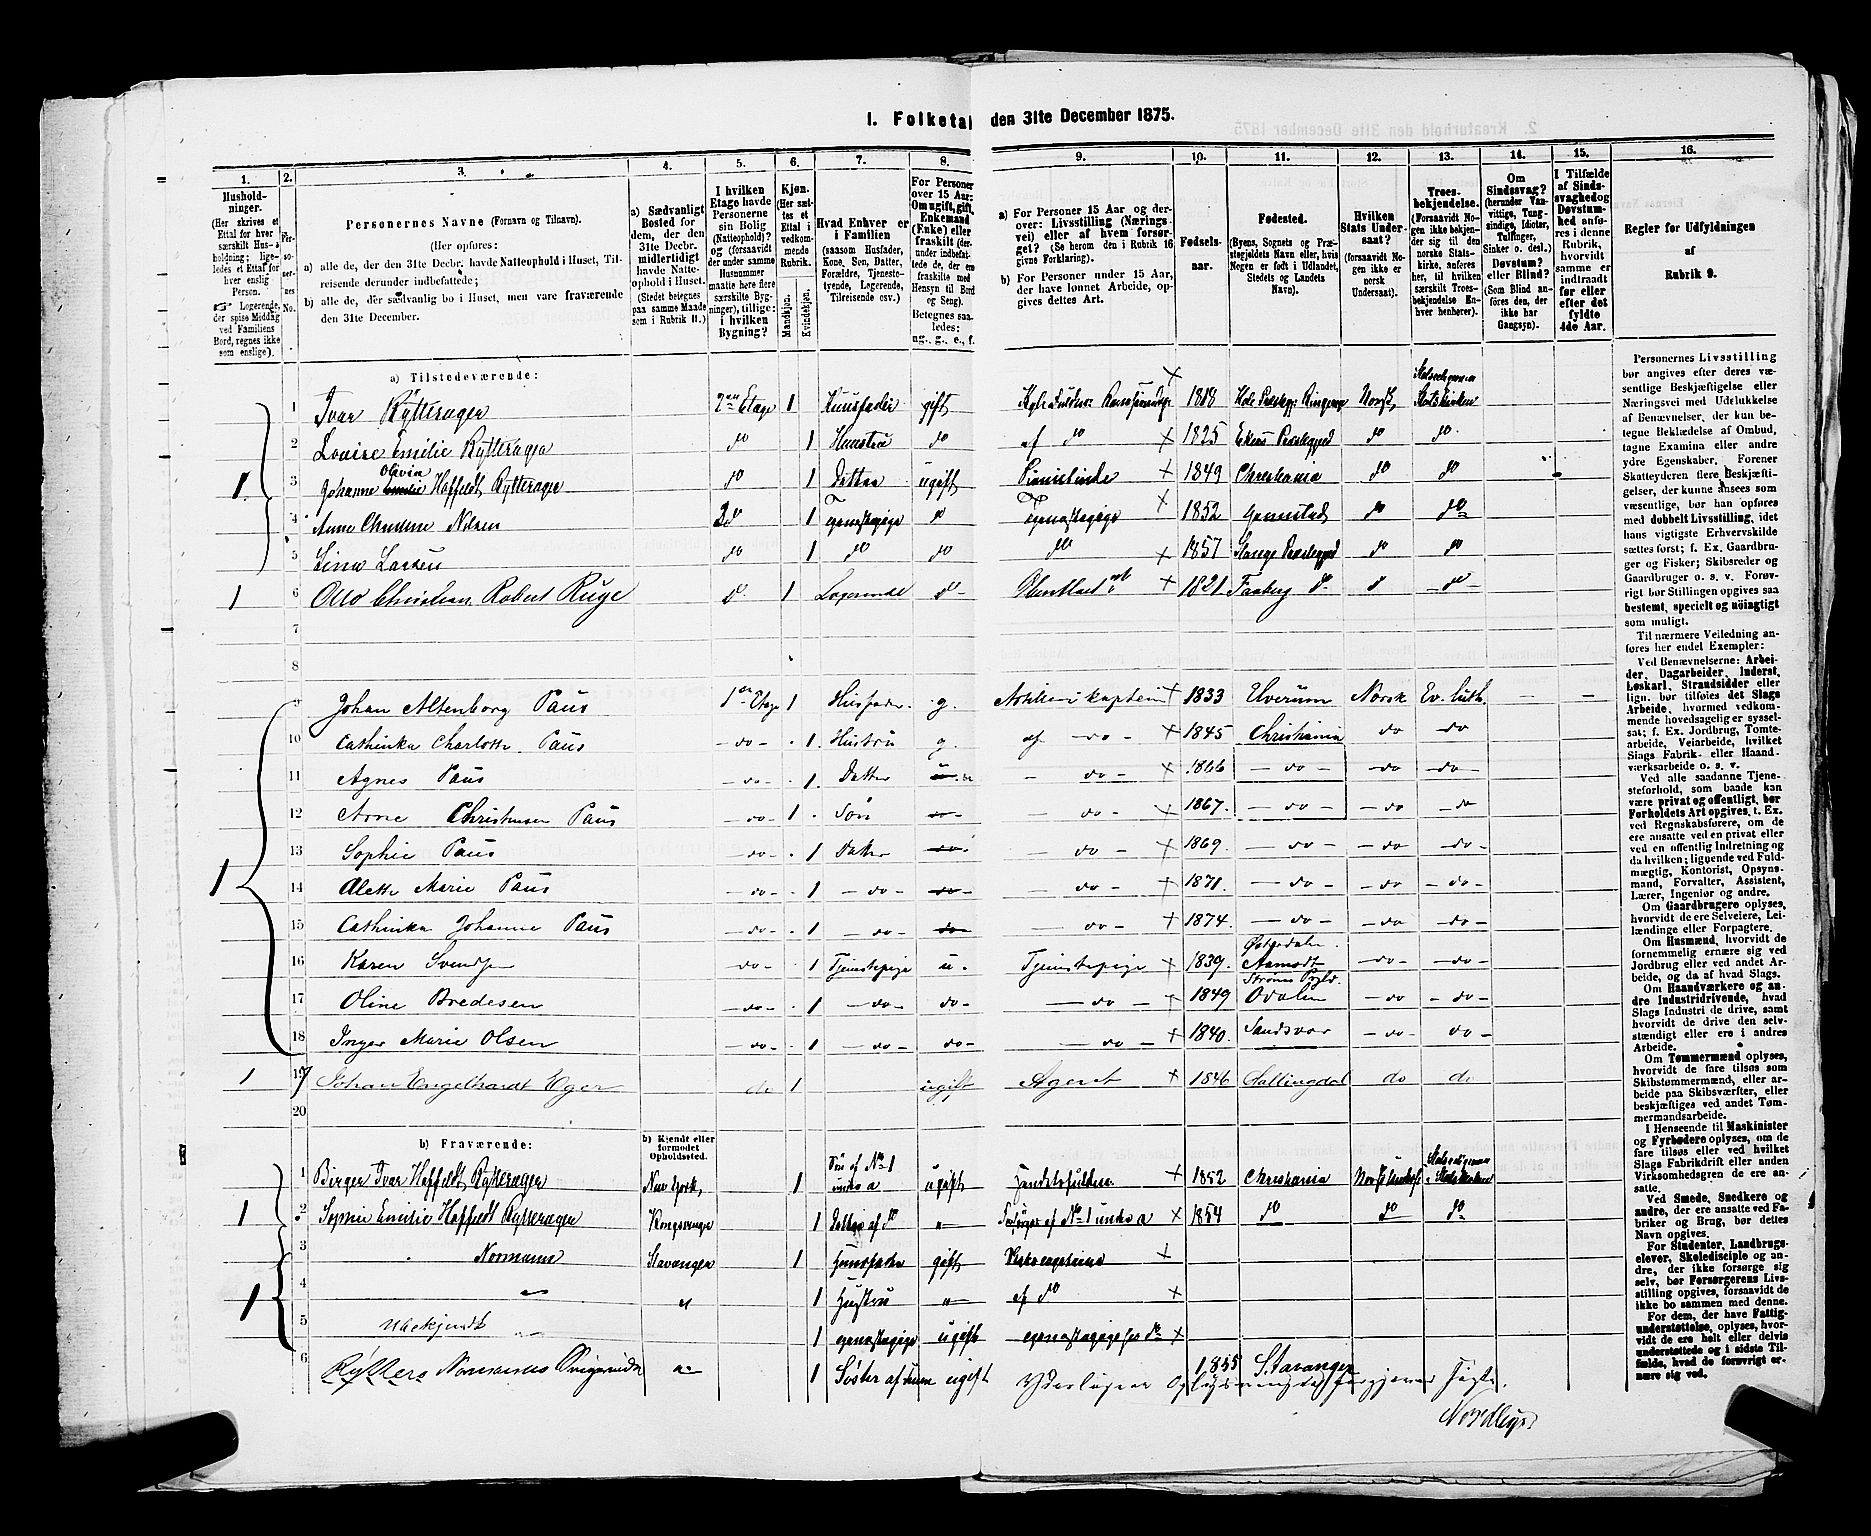 I. Folketal den 31te December 1875.
1. 2. 3. 4. 5. 6. 7. 8. 9. 10. 11. 12. 13. 14. 15. 16.
Hushold-
ninger.
(Her skrives et
Ettal for hver
særskilt Hus-
holdning; lige-
ledes et Ettal for
hver enslig
Person.
Logerende,
der spise Middag
ved Familiens
Bord, regnes ikke
som enslige).
Per-
so-
ner-
nes
No.
Personernes Navne (Fornavn og Tilnavn).
(Her opføres:
a) alle de, der den 31te Decbr. havde Natteophold i Huset, Til-
reisende derunder indbefattede;
b) alle de, der sædvanlig bo i Huset, men vare fraværende
den 31te December.
a) Sædvanligt
Bosted for
dem, der den
31te Decbr.
midlertidigt
havde Natte-
ophold i Huset.
(Stedet betegnes
paa samme Maade
som i Rubrik 11.)
I hvilken
Etage havde
Personerne
sin Bolig
(Natteophold)?
og (forsaavidt
der under samme
Husnummer
maatte høre flere
særskilte Byg-
ninger), tillige:
i hvilken
Bygning?
Kjøn.
(Her sæt-
tes et
Ettal i
vedkom-
mende
Rubrik.
Mandskjøn.
Kvindekjøn.
Hvad Enhver er
i Familien
(saasom Husfader,
Kone, Søn, Datter,
Forældre, Tjeneste-
tyende, Logerende,
Tilreisende osv.)
For Personer
over 15 Aar:
Om ugift, gift,
Enkemand
(Enke) eller
fraskilt (der-
under indbefat-
tede de, der ere
fraskilte med
Hensyn til Bord
og Seng).
Betegnes saa-
ledes:
ug., g., e., f.
a) For Personer 15 Aar og der-
over: Livsstilling (Nærings-
vei) eller af hvem forsør-
get? (Se herom den i Rubrik 16
givne Forklaring).
b) For Personer under 15 Aar,
der have lønnet Arbeide, op-
gives dettes Art.
Fødsels-
aar.
Fødested.
(Byens, Sognets og Præ-
stegjeldets Navn eller, hvis
Nogen er født i Udlandet,
Stedets og Landets
Navn).
Hvilken
Stats Under-
saat?
(forsaavidt No-
gen ikke er
norsk
Undersaat).
Troes-
bekjendelse.
(Forsaavidt No-
gen ikke bekjen-
der sig til den
norske Stats-
kirke, anføres
her, til hvilken
særskilt Troes-
bekjendelse En-
hver henhører).
Om
Sindssvag?
(herunder Van-
vittige, Tung-
sindige, Idioter,
Tullinger,
Sinker o. desl.).
Døvstum?
eller Blind?
(Som Blind an-
føres den, der
ikke har
Gangsyn).
I Tilfælde
af Sinds-
svaghed og
Døvstum-
hed anfø-
res i denne
Rubrik,
hvorvidt
samme er
indtraadt
før eller
efter det
fyldte
4de Aar.
Regler for Udfyldningen
af
Rubrik 9.
a) Tilstedeværende:
1 Ivar Rytterager 2den Etage 1 Huusfader gift 1818 Norsk Statskirken
2 Louise Emilie Rytterager do 1 Huustru do af do 1825 do do
1 3 Johanne Olivia Haffeldt Rytterager do 1 Datter ugift 1849 Christiania do do
4 Anne Nilsen 1 1852 do do
5 Lina Larsen do 1 do do do 1857 Stange Præstegjeld do do
1 6 Otto Christian Robert Ruge 1 Logerende 1821 Faaberg do
7
8
9 Johan Altenborg Paus 1ste Etage 1 Husfader. g. Artillerikaptein 1833 Elverum Norsk Ev. luth. — —
10 Cathinka Charlotte Paus - do - 1. Hustru g. af - do - 1845 Christiania do do
11 Agnes Paus - do - 1. Datter - do - 1866 - do - - do - - do -
12 Arne Christensen Paus - do - 1. Søn - do - 1867. - do - - do - do
13 Sophie Paus - do - 1 Datter - do - 1869. - do - - do - - do -
1 14 Alette Marie Paus - do - 1 - do - - do - 1871. - do - - do - - do -
15 Cathinka Johanne Paus - do - 1 - do - - do - 1874. - do - - do - - do -
16 Karen Svendsen do - 1 Tjenstepige u. Tjenstepige 1839. Aamodt - do - - do -
17 Oline Bredesen - do - 1 - do - do - - do - 1849 Odalen - do - - do -
18 Inger Marie Olsen - do - 1 - do - do - - do - 1840. Sandsvær - do - do -
1 19 Johan Engelhardt Eger do 1 ugift Agent 1846 Hallingdal do do
20
b) Fraværende:
b) Kjendt eller
formodet
Opholdssted.
1 Birger Ivar Haffeldt Rytterager New York 1 Søn af No 1 under a ugift 1852 Christiania Norsk Statskirken
1 2 Sophie Emilie Haffeldt Rytterager Kongsvinger 1 Datter af do „ Forsørget af No 1 under a 1854 do do do
3 Normann Stavanger 1 Huusfader gift
1 4 „ „ 1 Hustru „ af do
5 Ubekjendt 1 ugift
6 Normanns 1 Søster af ugift 1855 Stavanger
Yderligere Oplysninger
Personernes Livsstilling
bør angives efter deres væ-
sentlige Beskjæftigelse eller
Næringsvei med Udelukkelse
af Benævnelser, der kun be-
tegne Beklædelse af Ombud,
tagne Examina eller andre
ydre Egenskaber. Forener
Skatteyderen flere Beskjæfti-
gelser, der kunne ansees som
væsentlige, bør han opføres
med dobbelt Livsstilling, idet
hans vigtigste Erhvervskilde
sættes først; f. Ex. Gaardbru-
ger og Fisker; Skibsreder og
Gaardbruger o. s. v. Forøv-
rigt bør Stillingen opgives saa
bestemt, specielt og nöiagtigt
som muligt.
Til nærmere Veiledning an-
føres her endel Exempler:
Ved Benævnelserne: Arbei-
der, Dagarbeider, Inderst,
Løskarl, Strandsidder eller
lign. bør tilføies det Slags
Arbeide, hvormed vedkom-
mende hovedsagelig er syssel-
sat; f. Ex. Jordbrug, Tomte-
arbeide, Veiarbeide, hvilket
Slags Fabrik- eller Haand-
værksarbeide o. s. v.
Ved alle saadanne Tjene-
steforhold, som baade kan
være privat og offentligt, bør
Forholdets Art opgives, t. Ex.
ved Regnskabsførere, om de
ere ansatte ved en privat eller
ved en offentlig Indretning og
da hvilken; lignende ved Fuld-
mægtig, Kontorist, Opsyns-
mand, Forvalter, Assistent,
Lærer, Ingeniør og andre.
Om Gaardbrugere oplyses,
hvorvidt de ere Selveiere, Lei-
lændinge eller Forpagtere.
Om Husmænd, hvorvidt de
fornemmelig ernære sig ved
Jordbrug eller ved andet Ar-
beide, og da af hvad Slags.
Om Haandværkere og an-
dre Industridrivende, hvad
Slags Industri de drive, samt
hvorvidt de drive den selv-
stændigt eller ere i andres
Arbeide.
Om Tømmermænd oplyses,
hvorvidt de fare tilsøs som
Skibstømmermænd, eller ar-
beide paa Skibsværfter, eller
beskjæftiges ved andet Tøm-
mermandsarbeide.
I Henseende til Maskinister
og Fyrbødere oplyses, om de
fare tilsøs eller ved hvilket
Slags Fabrikdrift eller anden
Virksomhedsgren de ere an-
satte.
Ved Smede, Snedkere og
andre, der ere ansatte ved Fa-
briker og Brug, bør dettes
Navn opgives.
For Studenter, Landbrugs-
elever, Skoledisciple og an-
dre, der ikke forsørge sig
selv, bør Forsørgerens Livs-
stilling opgives, forsaavidt de
ikke bo sammen med denne.
For dem, der have Fattig-
understøttelse, oplyses, hvor-
vidt de ere helt eller delvis
understøttede og i sidste Til-
fælde, hvad de forøvrigt er-
nære sig ved.